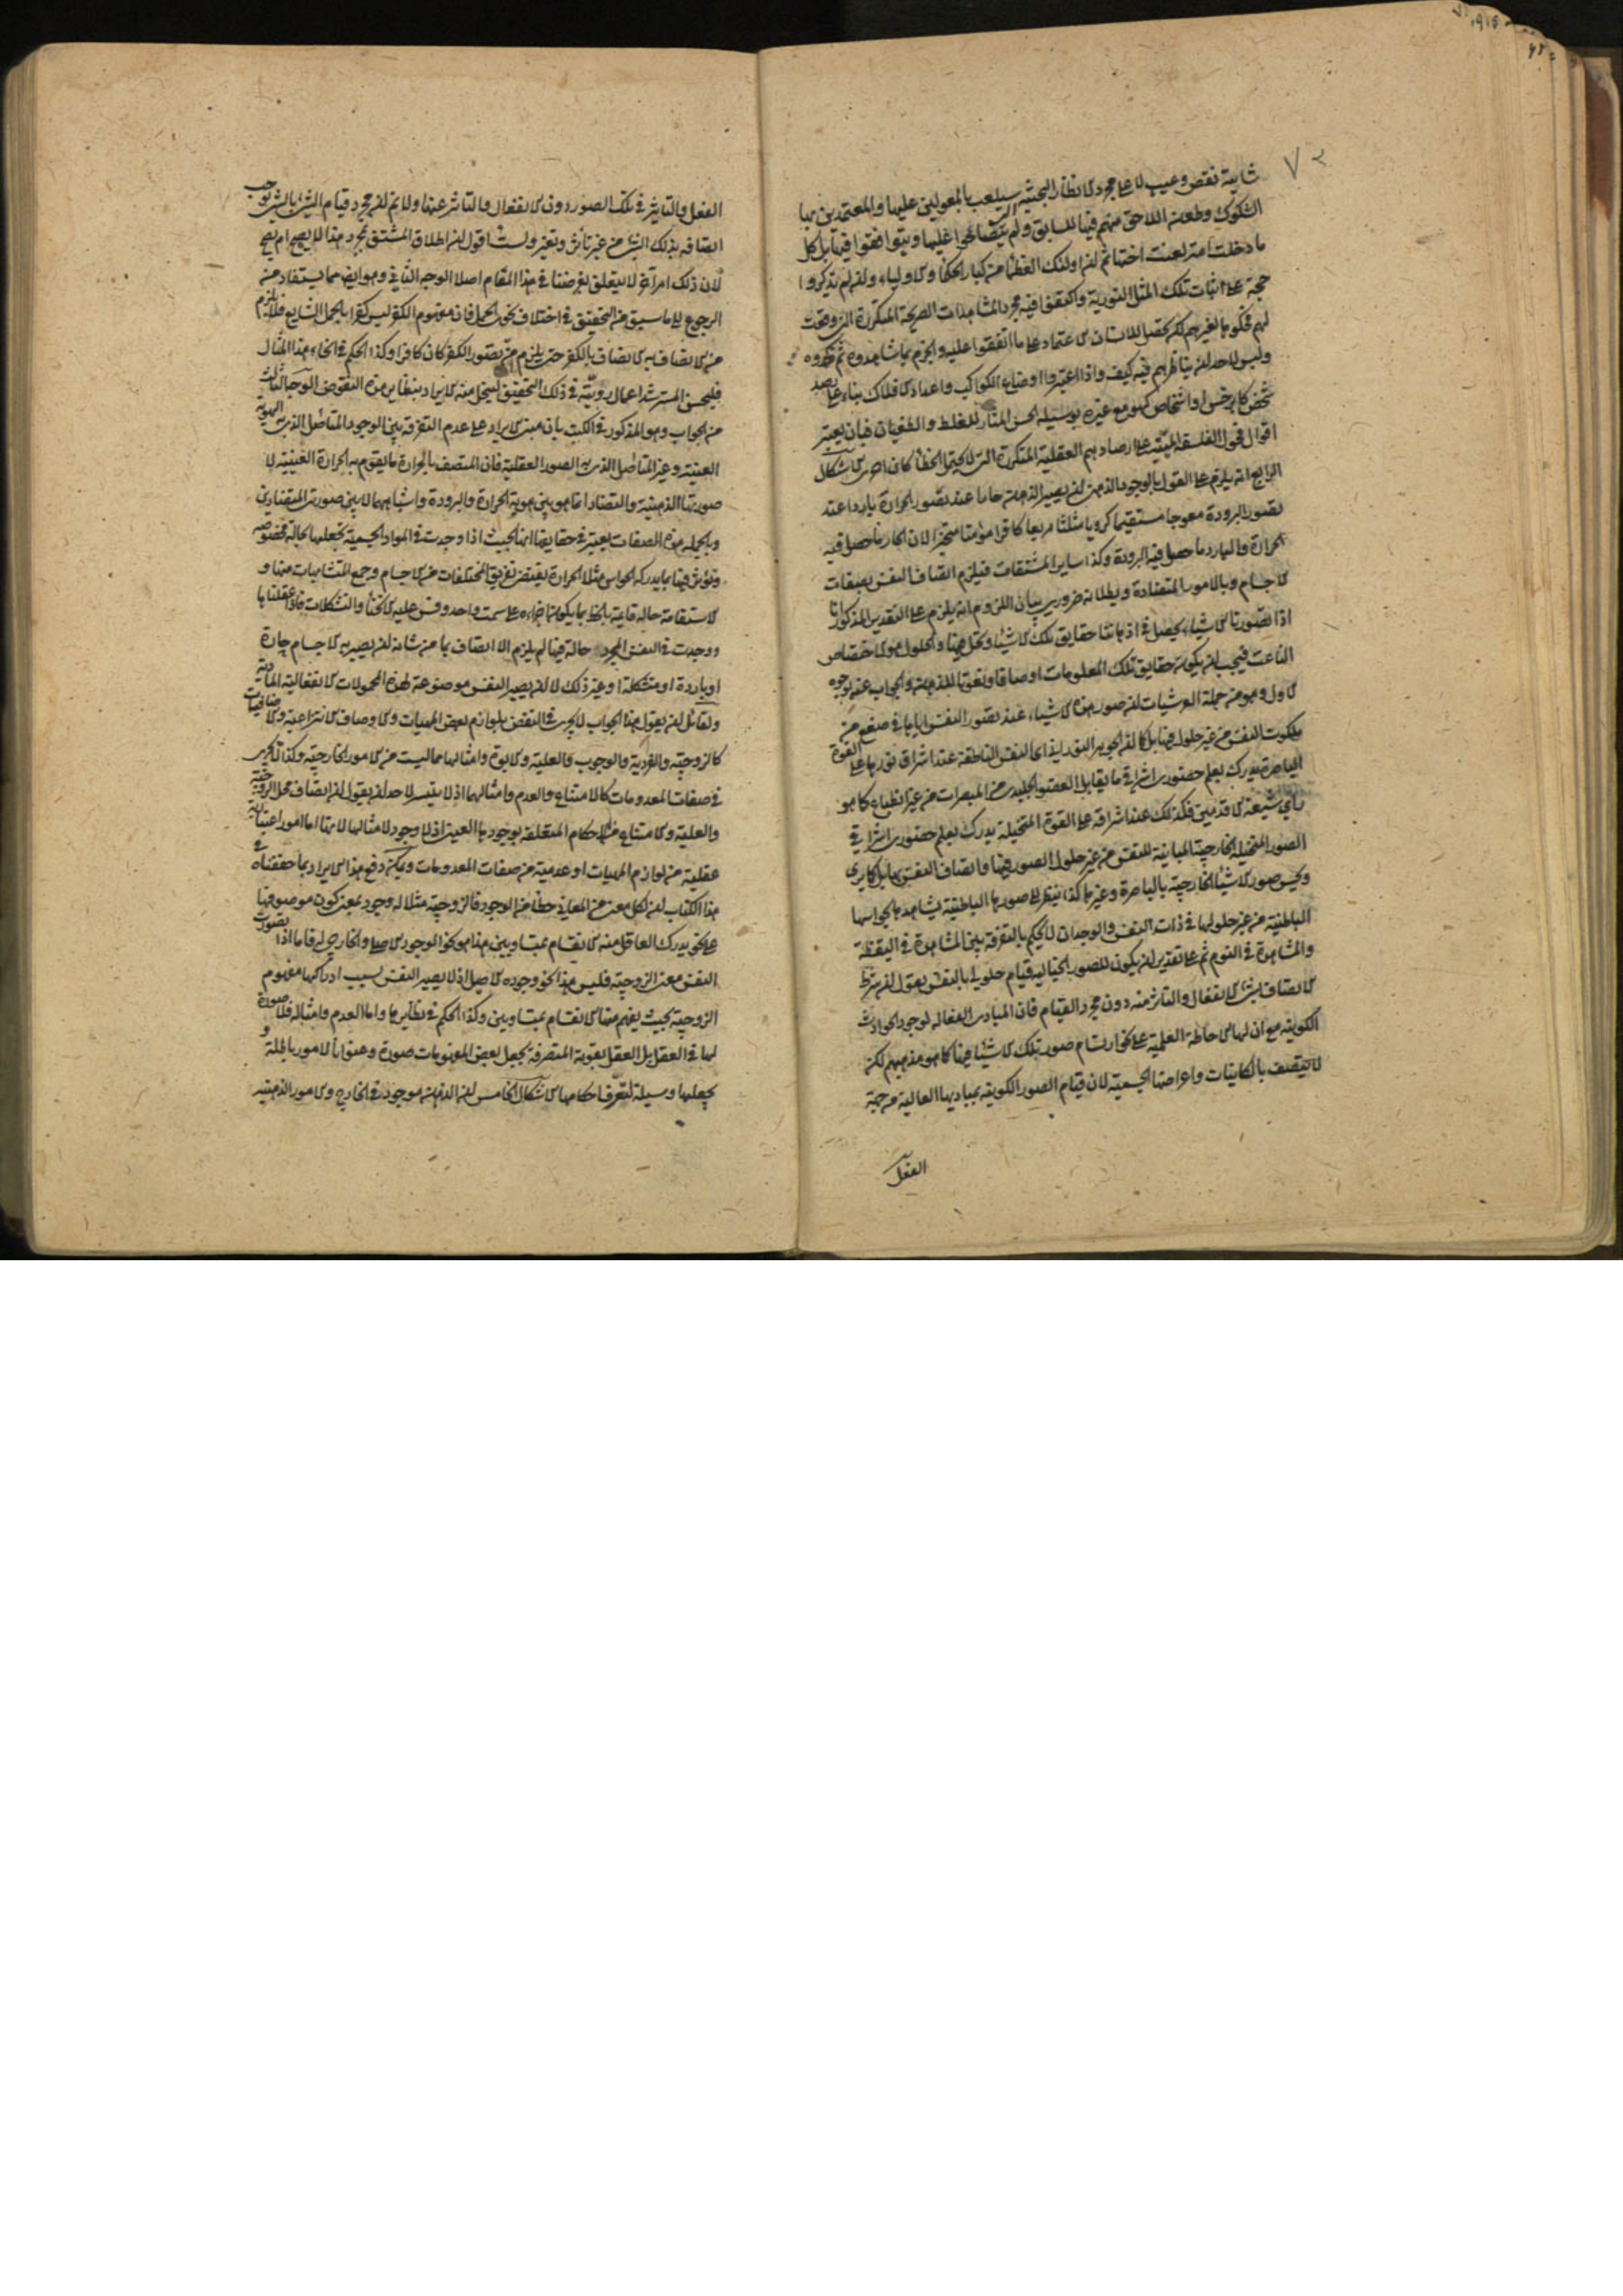 شايبة نقص وعيب لا على مجرد الانظار البحثية سيلعب بالمعولين عليها والمعتمدين بها
الشكوك وطعن اللاحق منهم فيها للسابق ولم يتصالحوا عليها ويتوافقوا فيها بل كل
ما دخلت امة لعنت اختها ثم ان اولئك العظما من كبار الحكما والاولياء وان لم يذكروا
حجة على اثبات تلك المثل النورية واكتفوا فيه بمجرد المشاهدات الصريحة المتكررة التى وقعت
لهم فحكوها لغيرهم لكن يحصل للانسان الاعتماد على ما اتفقوا عليه والجزم بما شاهدوه ثم ذكروه
وليس لاحد ان يناظرهم فيه كيف واذا اعتبروا اوضاع الكواكب واعداد الافلاك بناء على رصد
شخص كابرخس او اشخاص كهو مع غيره بوسيلة الحس المثار للغلط والطغيان فبان يعتبر
اقوال فحول الفلسفة المبنية على ارصادهم العقلية المتكررة التى لا يحتمل الخطأ كان احرى الاشكال
الرابع انه يلزم على القول بالوجود الذهنى ان يصير الذهن حارا عند تصور الحرارة باردا عند
تصور البرودة معوجا مستقيما كرويا مثلثا مربعا كافرا مؤمنا متحيزا لان الحار ما حصل فيه
الحرارة والبارد ما حصل فيه البرودة وكذا ساير المشتقات فيلزم اتصاف النفس بصفات
الاجسام وبالامور المتضادة وبطلانه ضرورى بيان اللزوم انه يلزم على التقدير المذكور انا
اذا تصورنا الاشياء يحصل فى اذهاننا حقايق تلك الاشياء وتحل فيها والحلول هو الاختصاص
الناعت فيجب ان يكون حقايق تلك المعلومات اوصافا ونعوتا للذهن والجواب عنه بوجوه
الاول وهو من جملة العرشيات ان صور هذه الاشياء عند تصور النفس اياها فى صقع من
ملكوت النفس من غير حلول فيها بل كما ان الجوهر النورانى اى النفس الناطقة عند اشراق نورها على القوة
الباصرة يدرك بعلم حضورى اشراقى ما يقابل العضو الجليدى من المبصرات من غير انطباع كما هو
راى شيعة الاقدمين فكذلك عند اشراقه على القوة المتخيلة يدرك بعلم حضورى اشراقى
الصور المتخيلة الخارجية المباينة للنفس من غير حلول الصور فيها واتصاف النفس بها بل كما يرى
ويحس صور الاشياء الخارجية بالباصرة وغيرها كذا ينظر الى صورها الباطنية يشاهدها بحواسها
الباطنية من غير حلولها فى ذات النفس والوجدان لا يحكم بالتفرقة بين المشاهدة فى اليقظة
والمشاهدة فى النوم ثم على تقدير ان يكون للصور الخيالية قيام حلولى بالنفس نقول ان شرط
الاتصاف بشئ الانفعال والتاثر منه دون مجرد القيام فان المبادى الفعالة لوجود الحوادث
الكونية مع ان لها الاحاطة العلمية على نحو ارتسام صور تلك الاشياء فيها كما هو مذهبهم لكن
لا يتصف بالكاينات واعراضها الجسمية لان قيام الصور الكونية بمباديها العالية من جهة
الفعل
الفعل والتاثير فى تلك الصور دون الانفعال والتاثر عنها ولا يتم ان مجرد قيام الشئ بالشئ يوجب
اتصافه بذلك الشئ من غير تأثر وتغير ولست اقول ان اطلاق المشتق بمجرد هذا لا يصح ام يصح
لان ذلك امر آخر لا يتعلق بغرضنا فى هذا المقام اصلا الوجه الثانى وهو ايضا مما يستفاد من
الرجوع الى ما سبق من التحقيق فى اختلاف نحوى الحمل فان مفهوم الكفر ليس كفرا بالحمل الشايع فلا يلزم
من الاتصاف به الاتصاف بالكفر حتى يلزم من تصور الكفر كان كافرا وكذا الحكم فى انحاء هذا المثال
فليحسن المسترشد اعمال رويته فى ذلك التحقيق لينحل منه الايراد بنقايض هذه النقوض الوجه الثالث
من الجواب وهو المذكور فى الكتب بان مبنى الايراد على عدم التفرقة بين الوجود المتاصل الذى به الهوية
العينية وغير المتاصل الذى به الصور العقلية فان المتصف بالحرارة ما يقوم به الحرارة العينية لا
صورتها الذهنية والتضاد انما هو بين هوية الحرارة والبرودة واشباههما لا بين صورتى المتضادين
وبالجملة هذه الصفات يعتبر فى حقايقها انها بحيث اذا وجدت فى المواد الجسمية تجعلها بحالة مخصوصة
وتؤثر فيها بما يدركه الحواس مثلا الحرارة يقتضى تفريق المختلفات من الاجسام وجمع المتشابهات منها و
الاستقامة حالة قايمة بالخط بما يكون اجزاءه على سمت واحد وقس عليه الانحناء والتشكلات فاذا عقلناها
ووجدت فى النفس المجرد حالة فيها لم يلزم الا اتصافها بما من شانه ان يصير به الاجسام حارة
او باردة او متشكلة او غير ذلك لا ان يصير النفس موضوعة لهذه المحمولات الانفعالية المادية
ولقائل ان يقول هذا الجواب لا يجرى فى النقض بلوازم بعض المهيات والاوصاف الانتزاعية والاضافيات
كالزوجية والفردية والوجوب والعلية والابوة وامثالها مما ليست من الامور الخارجية وكذا لا يجرى
فى صفات المعدومات كالامتناع والعدم وامثالهما اذ لا يتيسر لاحد ان يقول ان اتصاف محل الزوجية
والعلية والامتناع من الاحكام المتعلقة بوجودها العينى اذ لا وجود لامثالها لانها اما امور اعتبارية
عقلية من لوازم المهيات او عدمية من صفات المعدومات ويمكن دفع هذا الايراد بما حققناه فى
هذا الكتاب ان لكل معنى من المعانى حظا من الوجود فالزوجية مثلا له وجود بمعنى كون موصوفها
على نحو يدرك العاقل منه الانقسام بمتساويين هذا هو نحو الوجود الاصلى والخارجى له فاما اذا تصورت
النفس معنى الزوجية فليس هذا نحو وجوده الاصيل اذ لا يصير النفس بسبب ادراكها مفهوم
الزوجية بحيث يفهم منها الانقسام بمتساويين وكذا الحكم فى نظايرها واما العدم وامثاله فلا صورة
لها فى العقل بل العقل بقوته المتصرفة يجعل بعض المفهومات صورة وعنوانا لامور باطلة و
يجعلها وسيلة لتعرف احكامها الاشكال الخامس ان الذهن موجود فى الخارج والامور الذهنية